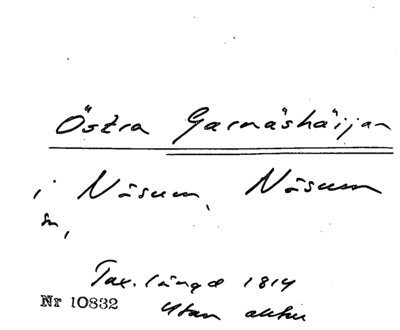 Östra Garnäshäijan
i Näsum, Näsum
sn,
Tax. längd 1814
Nr 10832 Utan akter